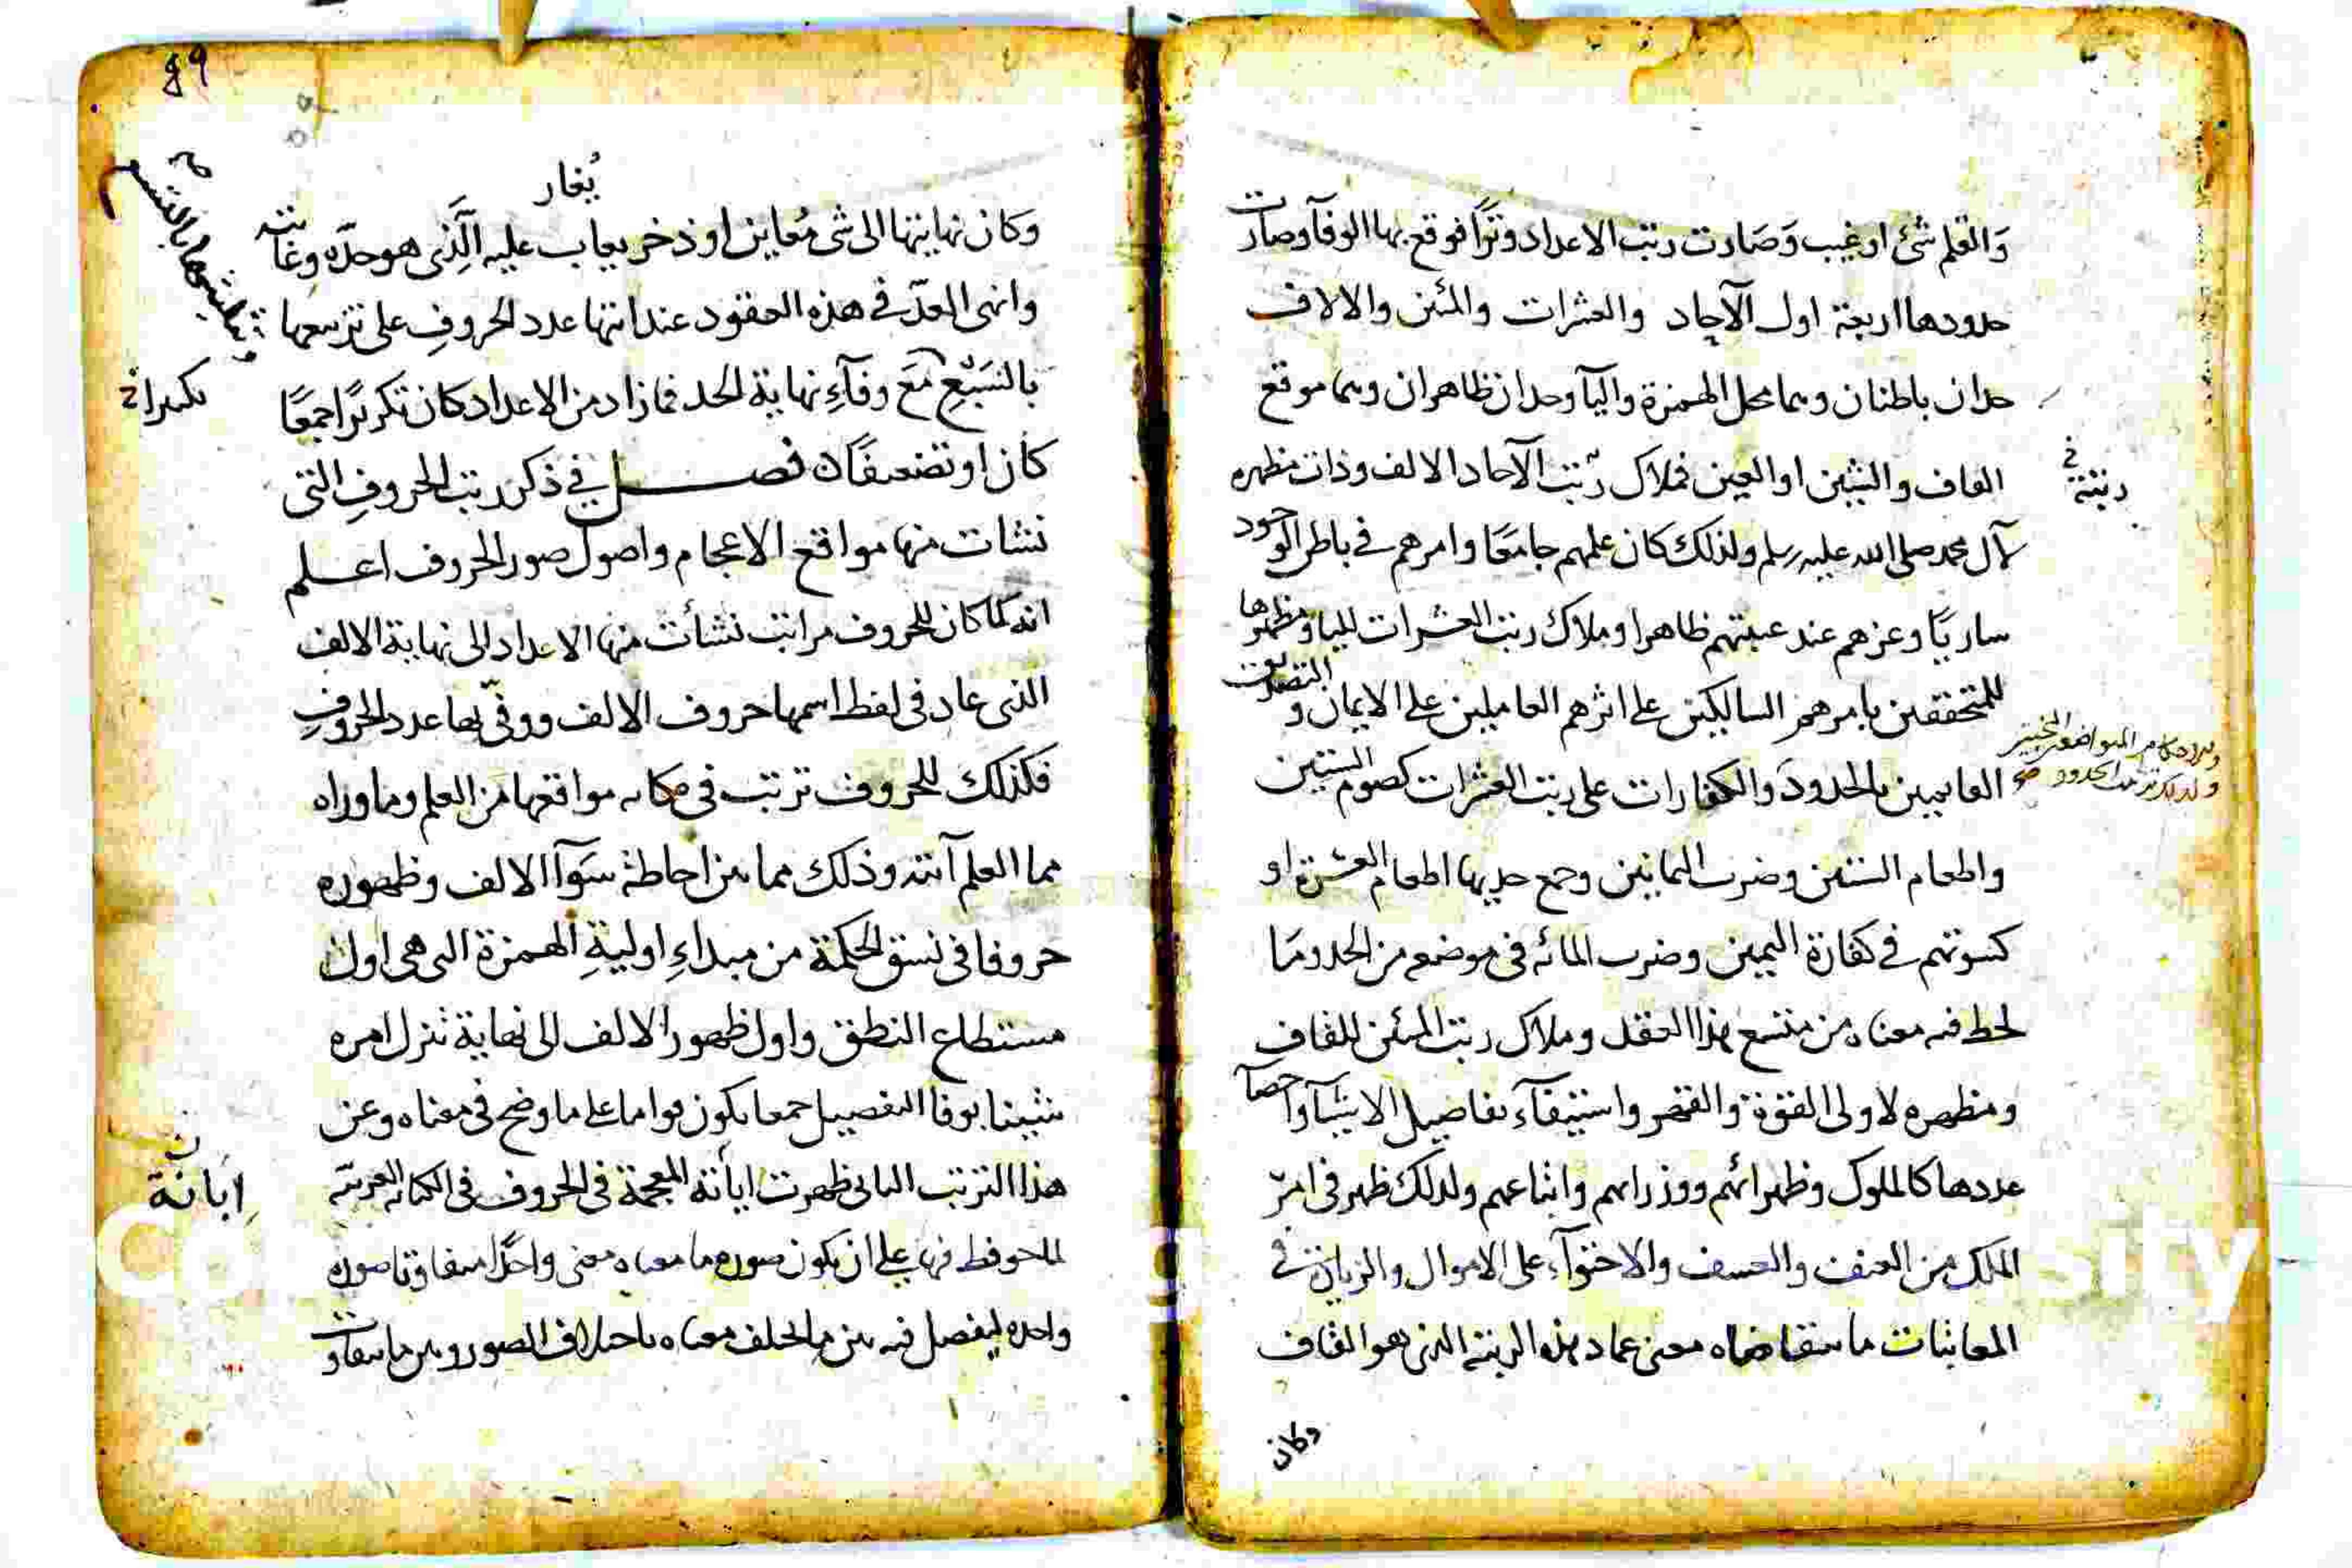 والقلم شئ او غيب وصارت رتب الاعداد وترا فوقع بها الوفآ وصارت
حدودها اربعة اول الآحاد والعشرات والمئين والالاف
حدان باطنان وهما محل الهمزة واليآ وحدان ظاهران وهما موقع
القاف والشين او الغين فملاك رتب الآحاد الالف وذات مظهره
لآل محمد صلى الله عليه وسلم ولذلك كان علمهم جامعا وامرهم في باطن الوجود
ساريا وعزهم عند غيبتهم ظاهرا وملاك رتب العشرات لليا ومظهرها
للمتحققين بامرهم السالكين على اثرهم العاملين على الايمان والتصديق
القائمين بالحدود والكفارات على رتب العشرات كصوم الستين
واطعام الستين وضرب الثمانين وجمع حديها اطعام العشرة او
كسوتهم في كفارة اليمين وضرب المائه في موضعه من الحد وما
لحظ فيه معناه من متسع هذا العقد وملاك رتب المئين للقاف
ومظهره لاولى القوة والقهر واستيفآء تفاصيل الاشيآ واحصآ
عددها كالملوك وظهرائهم ووزرائهم واتباعهم ولذلك ظهر في امر
الملك من العنف والعسف والاحتوآء على الاموال والزيادة في
المعاثبات ما يتقاضاه معنى عماد هذه الرتبة الذى هو القاف
وكان
رتبته في
89
يغار
وكان نهايتها الى شئ معاين او ذخر يعاب عليه الذى هو حده وغايته
وانهى العد في هذه العقود عند انتها عدد الحروف على ترسعها
بالتسبيع مع وفآء نهاية الحد فما زاد من الاعداد كان تكريرا جمعا
كان او تضعيفا فصل في ذكر رتب الحروف التى
نشات منها مواقع الاعجام واصول صور الحروف اعلم
انه كما كان للحروف مراتب نشأت منها الاعداد الى نهاية الالف
الذى عاد في لفظ اسمها حروف الالف ووفى بها عدد الحروف
فكذلك للحروف ترتب في مكانه مواقعها من العلم وما وراه
مما العلم آيته وذلك مما بين احاطة سوآ الالف وظهوره
حروفا في نسق الحكمة من مبداء اولية الهمزة التى هى اول
مستطاع النطق واول ظهور الالف الى نهاية تنزل امره
شينا بوفا التفصيل جمعا يكون قواما على ما وضح في معناه وعن
هذا الترتب الثانى ظهرت ابانة المعجمة في الحروف في الكتابه العربية
الملحوظ فيها على ان يكون صوره ما معناه معنى واحدا متفاوتا صوره
واحده ليفصل فيه بين ما اختلف معناه باختلاف الصور وبين ما تفاوت
تكريرا
ابانة